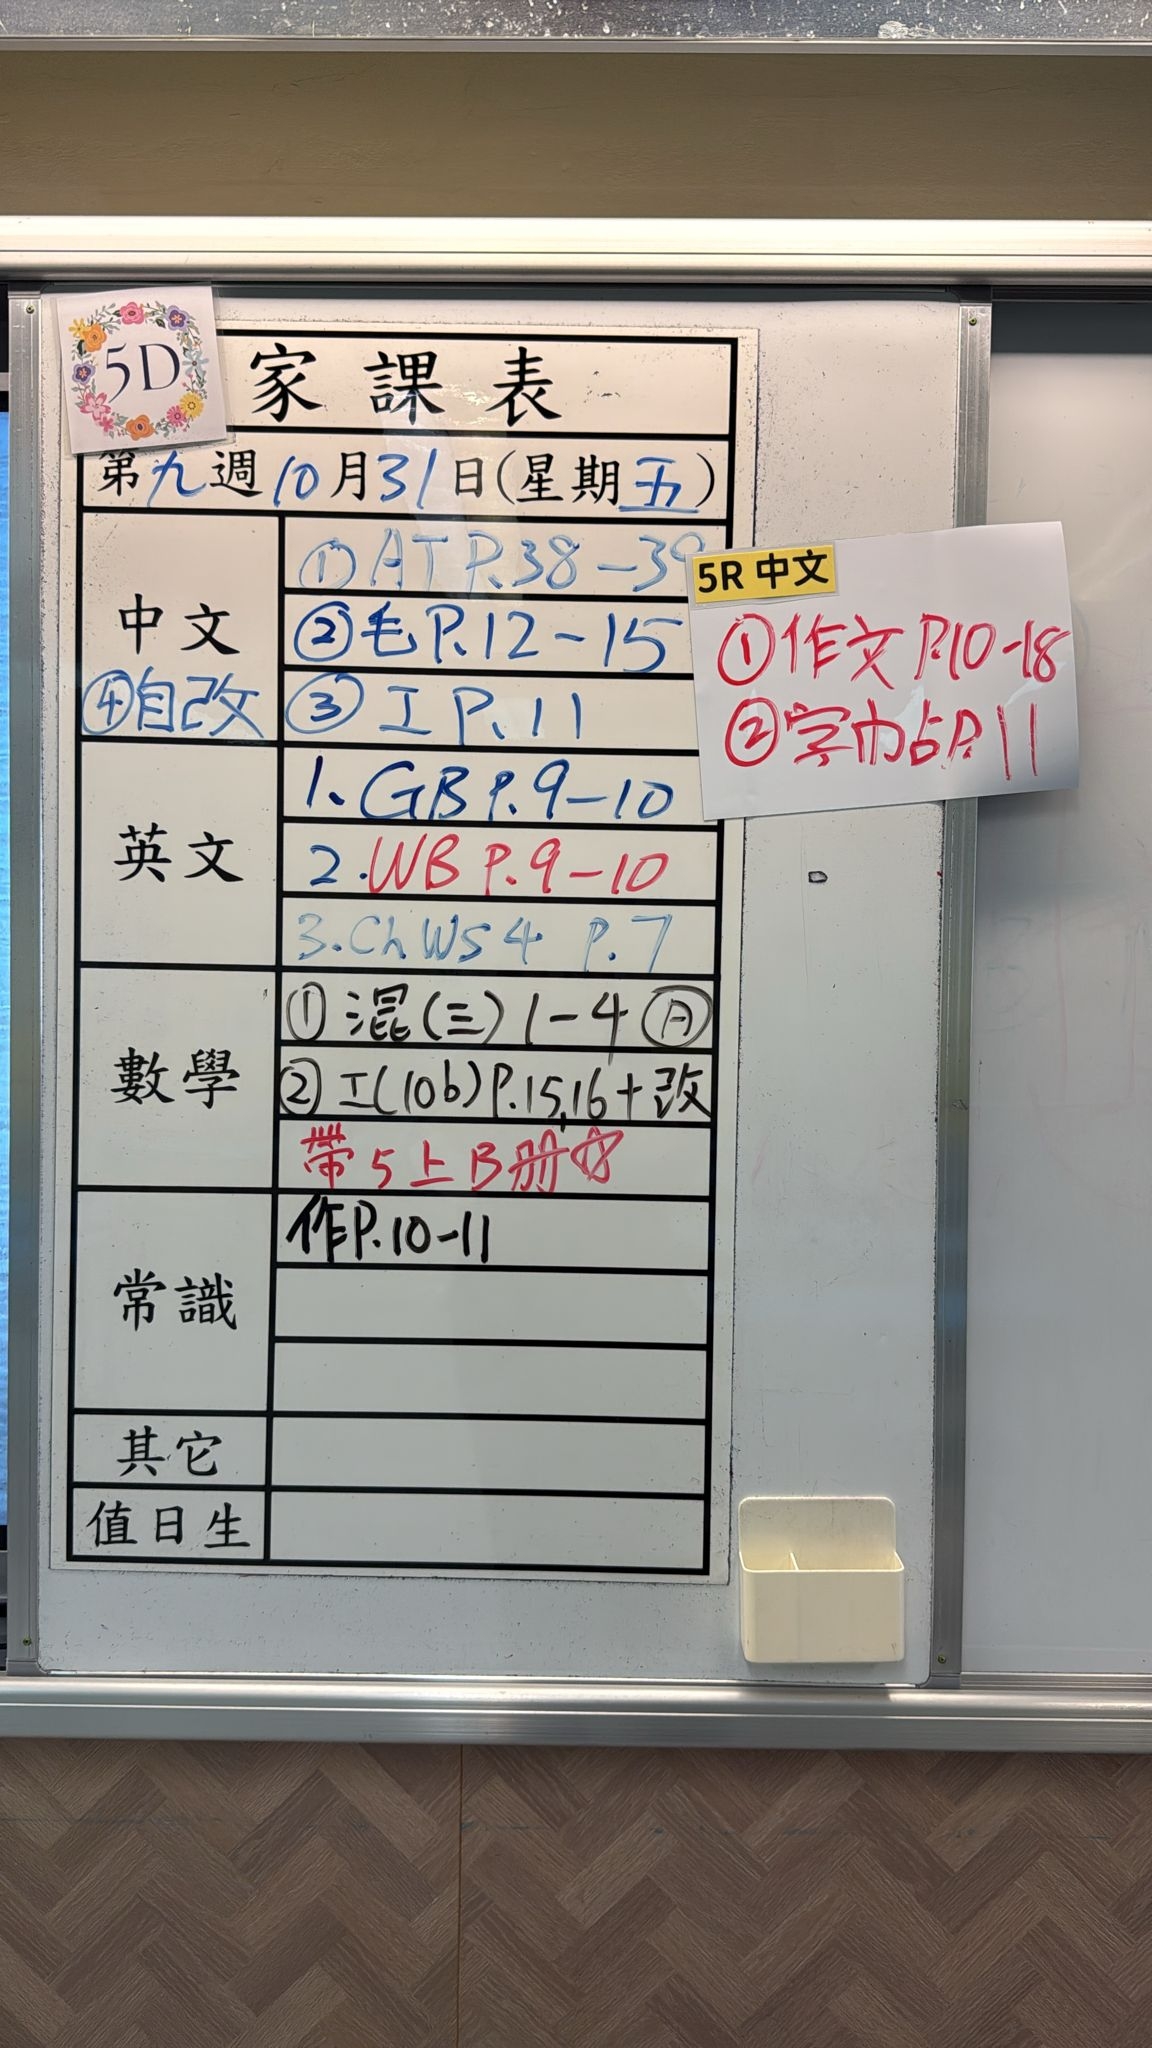 5D
家課表
第九週10月31日(星期五)
中文
①AT P.38-39
②毛 P.12-15
③工 P.11
④自改
5R 中文
①作文 P.10-18
P.11
英文
1. GB P.9-10
2. WB P.9-10
3. Ch WS 4 P.7
數學
①混(三) 1-4 Ⓐ
②工(10b) P.15,16+改
帶5上B冊☆
常識
作P.10-11
其它
值日生